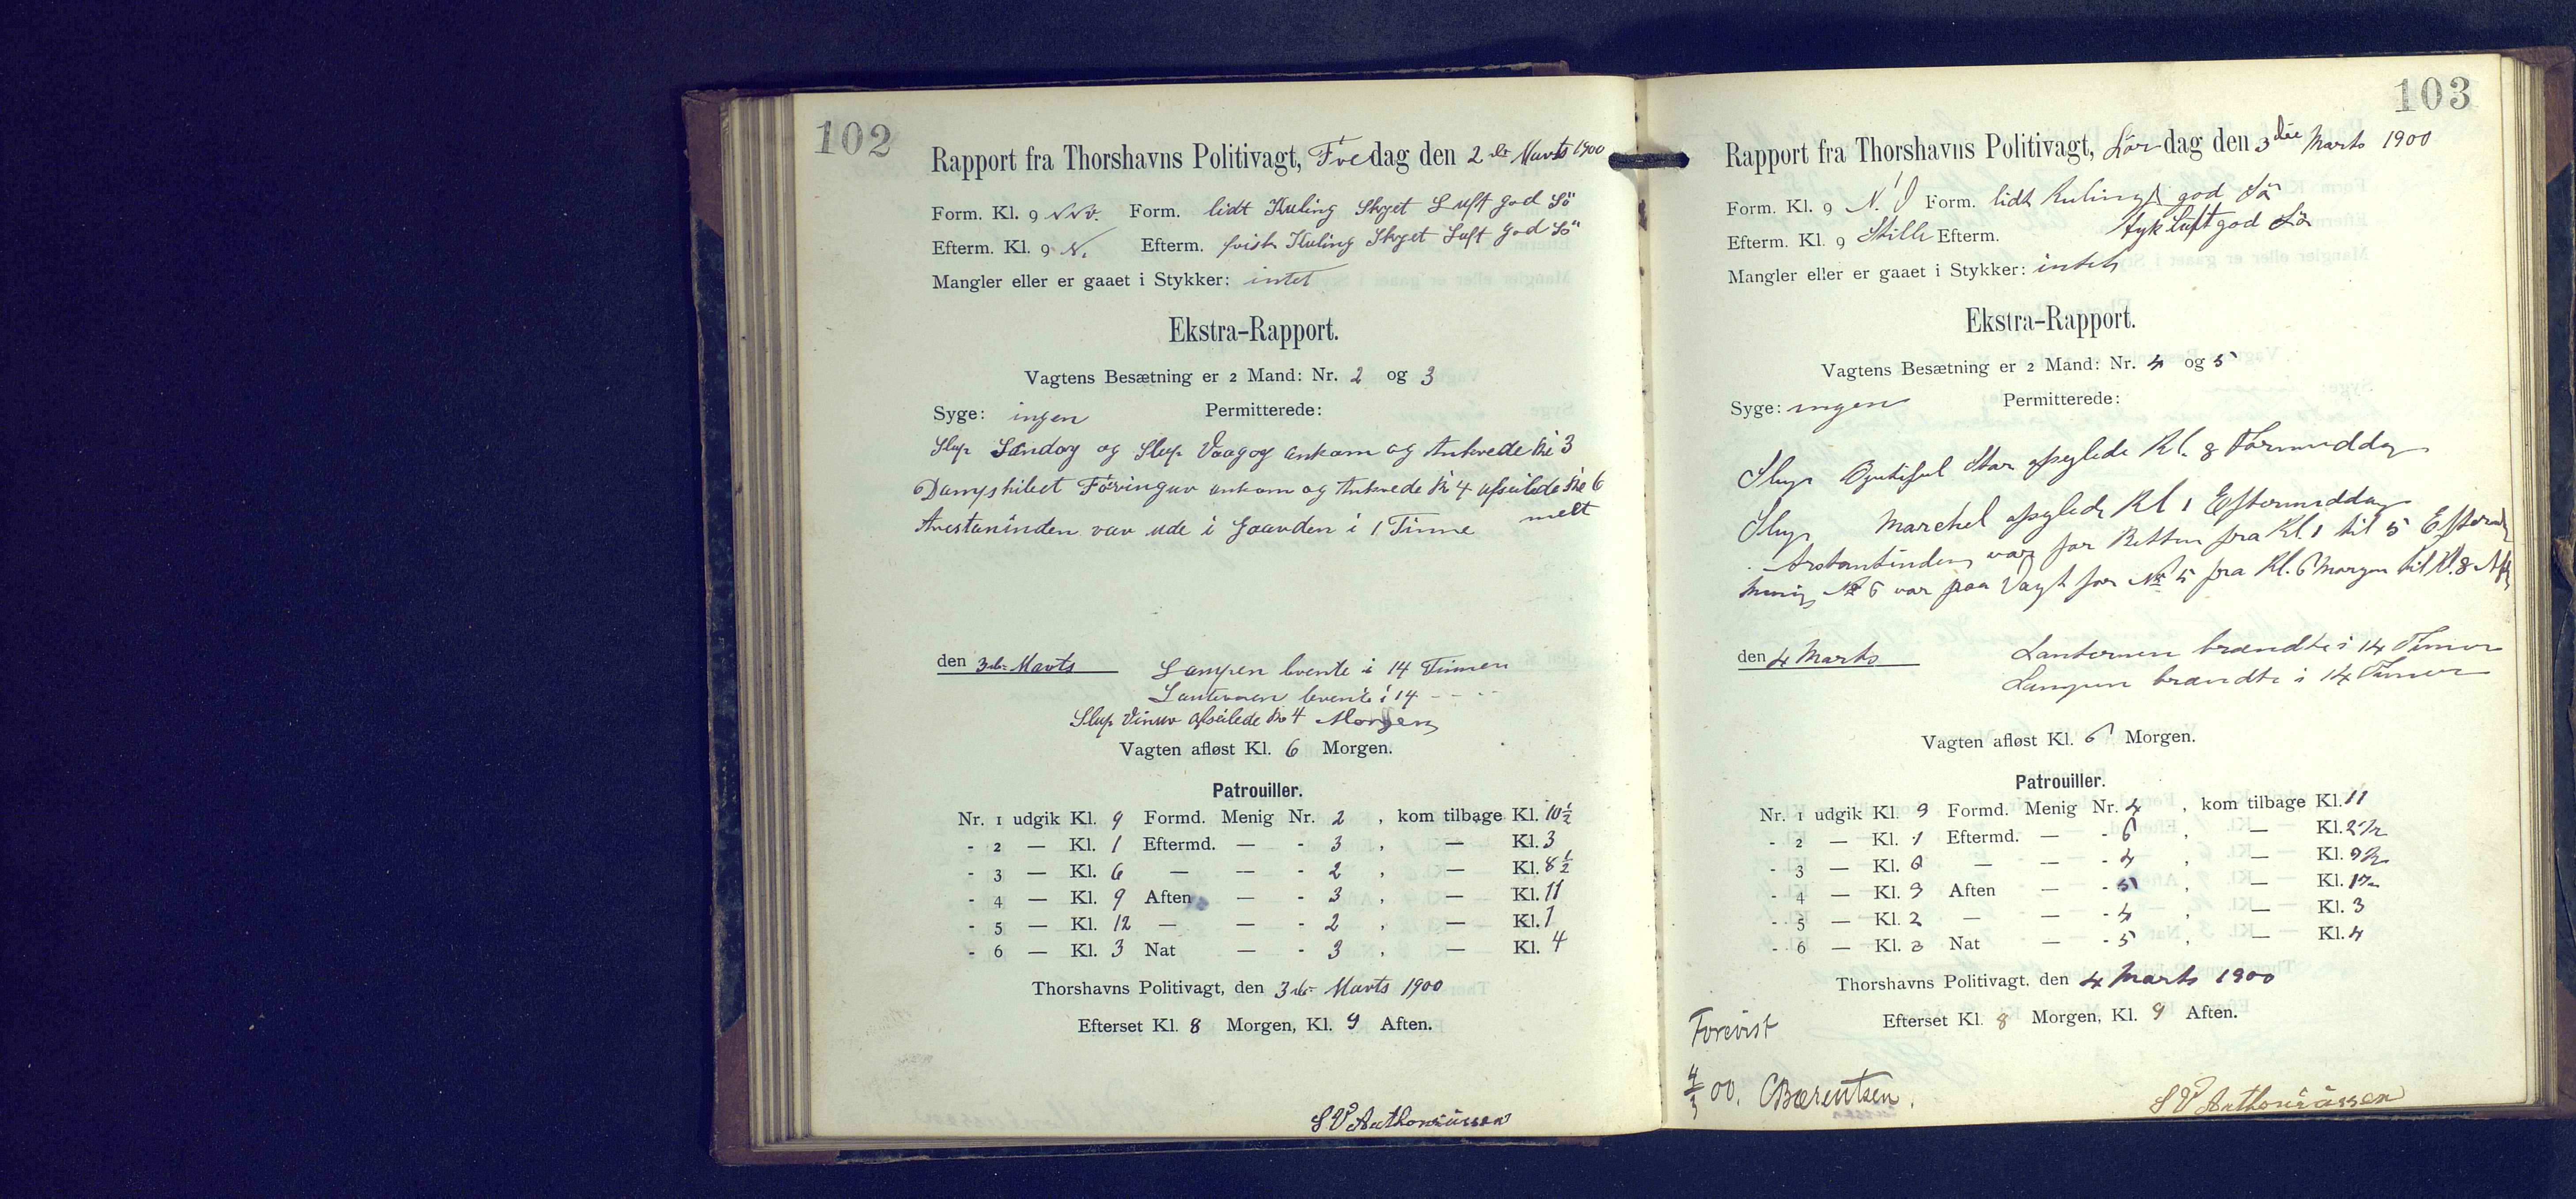 102
Rapport fra Thorshavns Politivagt, Fredag den 2de Marts 1900
Form. Kl. 9 NNV. Form. lidt Kuling Skyet Luft god Sö
Efterm. Kl. 9 N. Efterm. frisk Kuling Skyet Luft god Sö
Mangler eller er gaaet i Stykker: intet
Ekstra-Rapport.
Vagtens Besætning er 2 Mand: Nr. 2 og 3
Syge: ingen Permitterede:
Slup Sandoy og Slup Vaagoy ankom og Ankrede Kl 3
Dampskibet Föringur ankom og Ankrede Kl 4 afseilede Kl 6
Arestaninden var ude i Gaarden i 1 Time
den 3de Marts Lampen brente i 14 Timen
Lanternen brente i 14 - - - -
Slup afseilede Kl 4 Morgen
Vagten afløst Kl. 6 Morgen.
Patrouiller.
Nr. 1 udgik Kl. 9 Formd. Menig Nr. 2 , kom tilbage Kl. 10½
- 2 — Kl. 1 Eftermd. — - 3 , — Kl. 3
- 3 — Kl. 6 — — - 2 , — Kl. 8½
- 4 — Kl. 9 Aften — - 3 , — Kl. 11
- 5 — Kl. 12 — — - 2 , — Kl. 1
- 6 — Kl. 3 Nat — - 3 , — Kl. 4
Thorshavns Politivagt, den 3de Marts 1900
Efterset Kl. 8 Morgen, Kl. 9 Aften.
S V Anthoniussen
103
Rapport fra Thorshavns Politivagt, Lördag den 3die Marts 1900
Form. Kl. 9 N. Form. lidt Kuling god Sö
Efterm. Kl. 9 Stille Efterm. tyk luft god Sö
Mangler eller er gaaet i Stykker: intet
Ekstra-Rapport.
Vagtens Besætning er 2 Mand: Nr. 4 og 5
Syge: ingen Permitterede:
Slup Star afseylede Kl. 8 Formiddag
Slup Marchel afseylede Kl 1 Eftermiddag
Arstantinden var for Retten fra Kl. 1 til 5
Menig No 6 var paa Vagt for No 5 fra Kl. 6 Morgen til Kl. 8
den 4 Marts Lanternen brændte i 14 Timer
Lampen brændte i 14 Timer
Vagten afløst Kl. 6 Morgen.
Patrouiller.
Nr. 1 udgik Kl. 9 Formd. Menig Nr. 4 , kom tilbage Kl. 11
- 2 — Kl. 1 Eftermd. — - 6 , — Kl. 2½
- 3 — Kl. — — - 4 , — Kl. 9½
- 4 — Kl. 9 Aften — - 5 , — Kl.
- 5 — Kl. 2 — — - 4 , — Kl. 3
- 6 — Kl. 3 Nat — - 5 , — Kl. 4
Thorshavns Politivagt, den 4 Marts 1900
Efterset Kl. 8 Morgen, Kl. 9 Aften.
Forevist
4/3 00. CBærentsen.
S V Anthoniussen